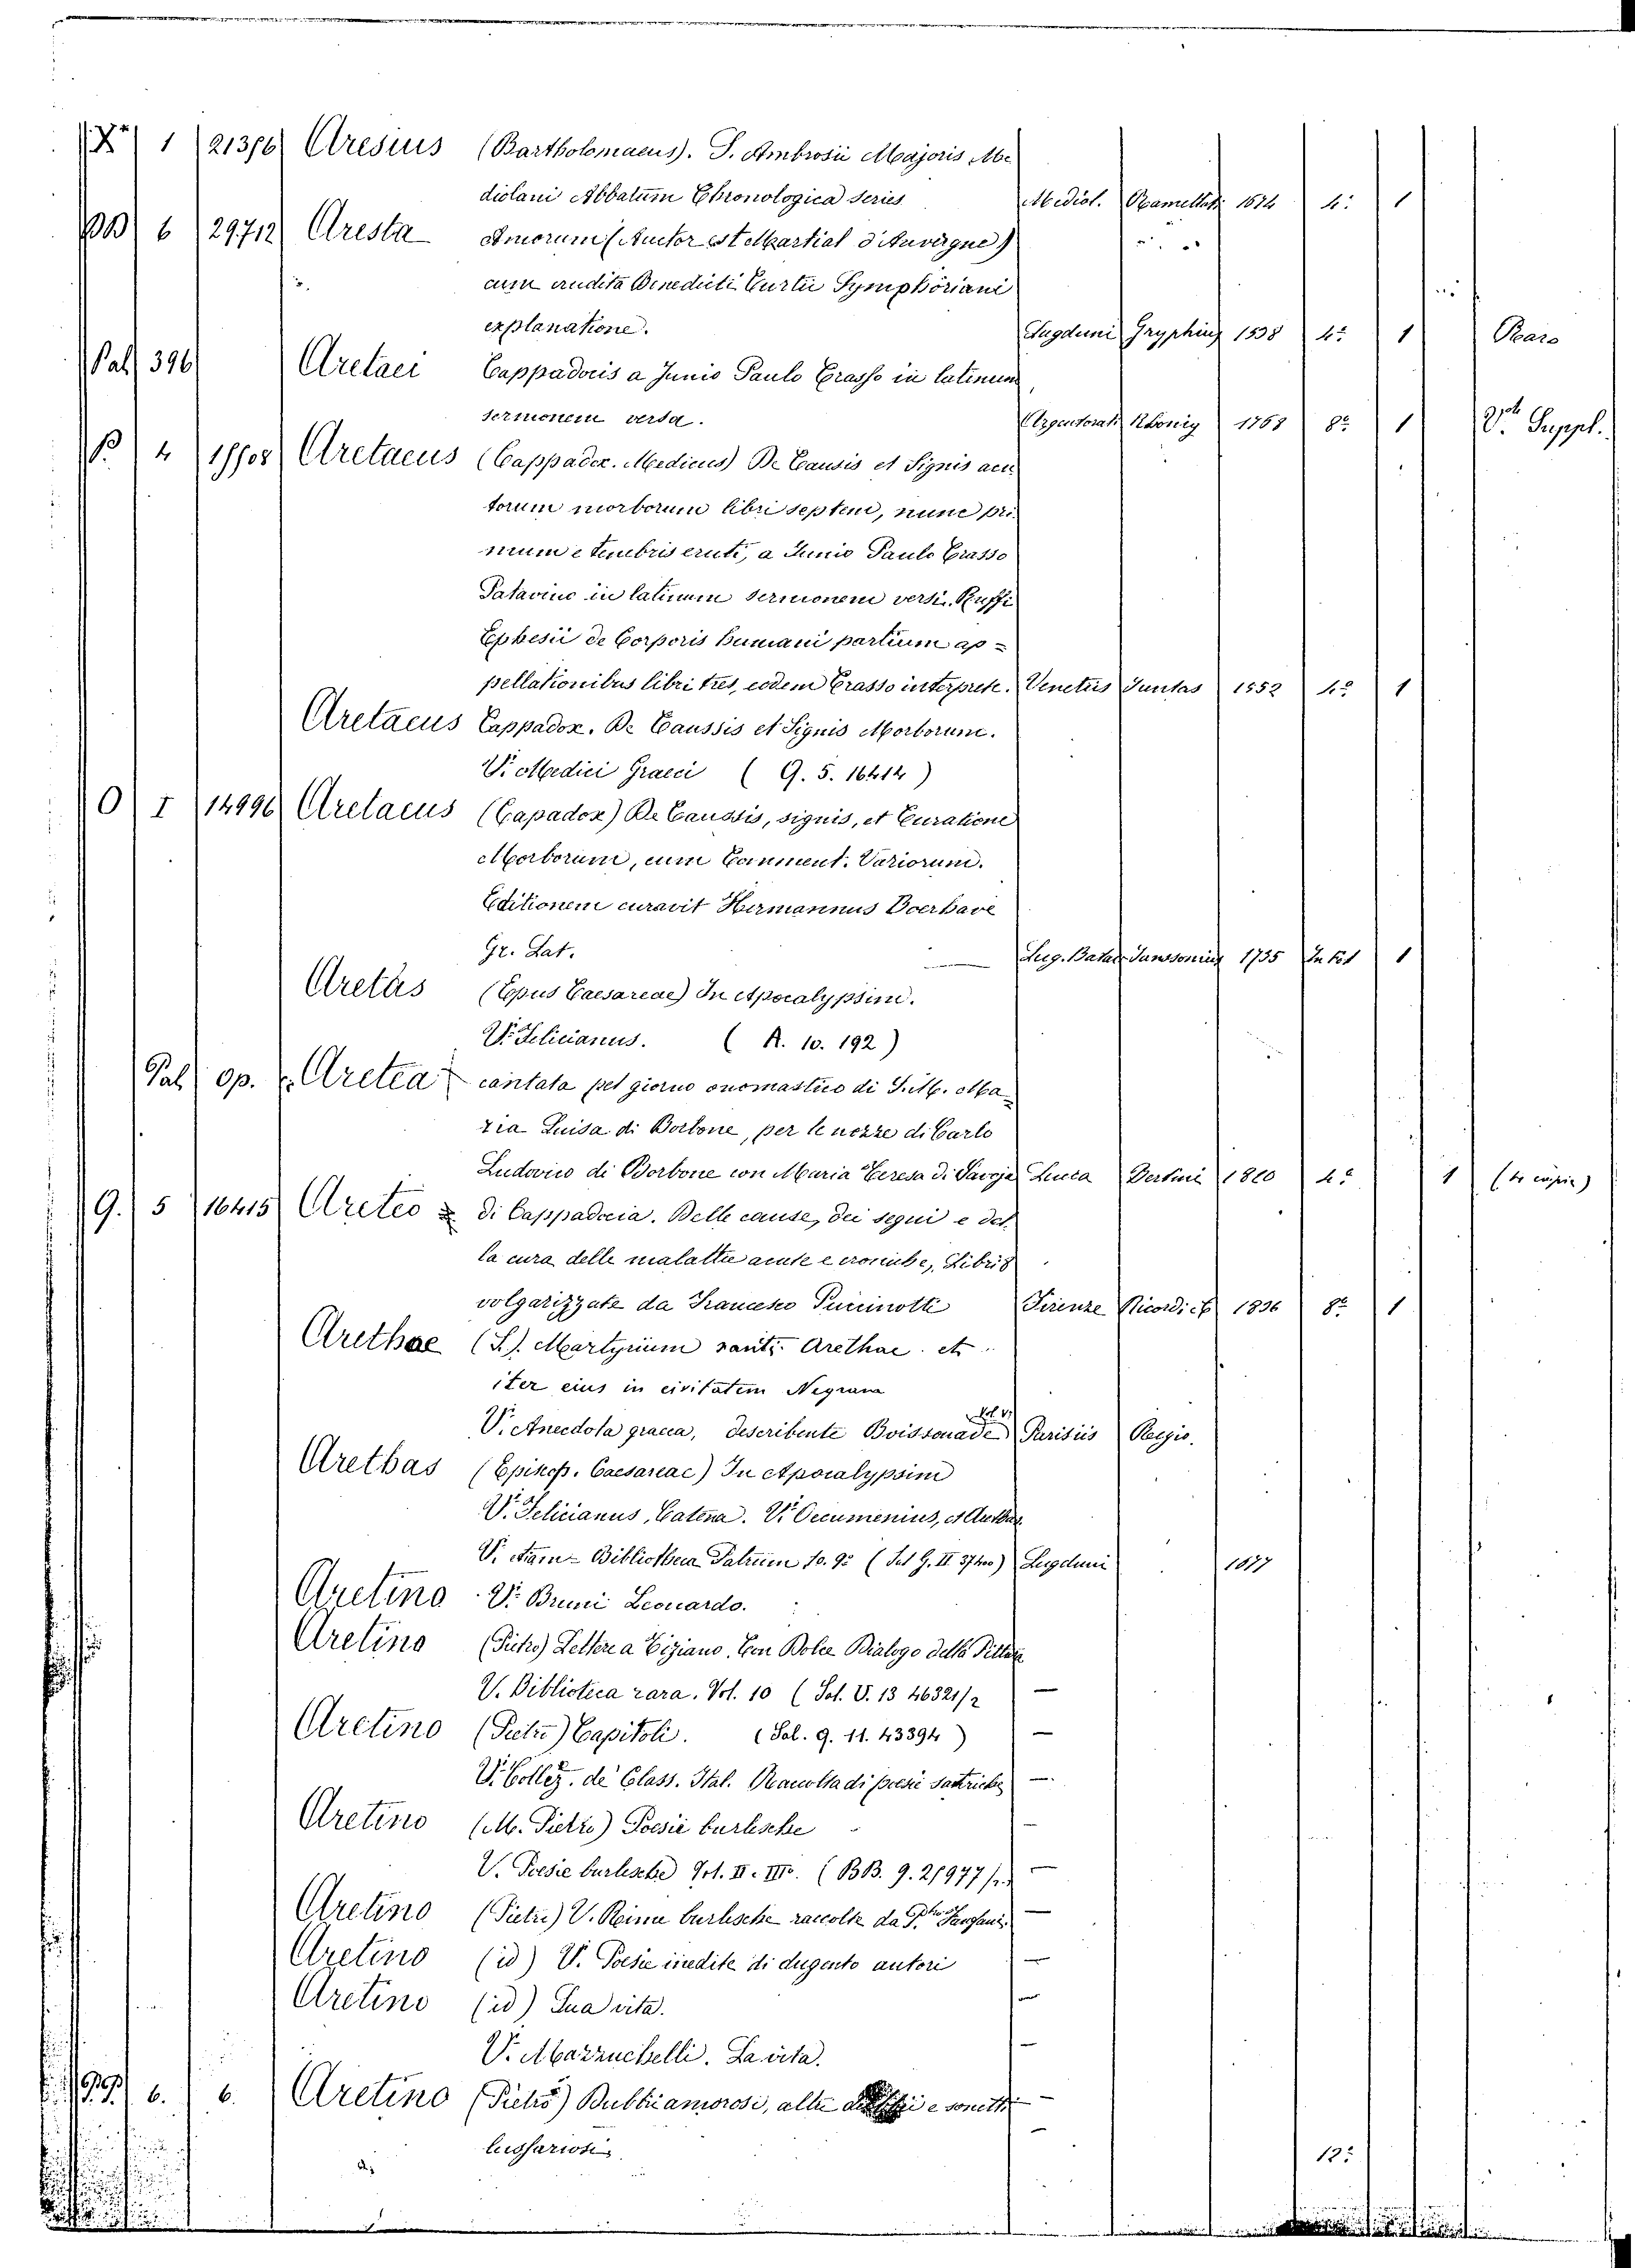 X 1 21376 Aresius (Bartholomaeus). S. Ambrosii Majoris Me
diolani Abbatum Chronologica series Mediol. Ramellati 1674 4.° 1
BB 6 29712 Aresta Amorum (Auctor est Martial d'Auvergne)
cum erudita Benedicti Curtii Symphoriani
explanatione. Lugduni Gryphius 1538 4.° 1 Raro
Pal 396 Aretaei Cappadocis a Junio Paulo Crasso in latinum
sermonem versa. Argentorati König 1768 8.° 1 V. Suppl.
B. 4 Aretaeus (Cappadox. Medicus) De Causis et Signis acu
torum morborum libri septem, nunc pri
mum e tenebris eruti, a Junio Paulo Crasso
Patavino in latinum sermonem versi. Ruffi
Ephesii de Corporis humani partium ap=
pellationibus libri tres, eodem Crasso interprete. Venetiis Juntas 1552 4.° 1
Aretaeus Cappadox. De Caussis et Signis Morborum.
V. Medici Graeci (G. 5. 16414)
O I 14996 Aretaeus (Capadox) De Caussis, signis, et Curatione
Morborum, cum Comment. Variorum.
Editionem curavit Hermannus Boerhave
Gr. Lat. Lug. Batav. Janssonius 1735 In fol 1
Aretas (Epus Caesareae) In Apocalypsim.
V. Felicianus. (A. 10. 192)
Pal op. Aretea cantata pel giorno onomastico di S. M. Ma
ria Luisa di Borbone, per le nozze di Carlo
Ludovico di Borbone con Maria Teresa di Savoja Lucca Bertini 1820 4.° 1 (4 copie)
G. 5 16415 Areteo di Cappadocia. Delle cause, dei segni e del
la cura delle malattie acute e croniche, Libri 8
volgarizzate da Francesco Puccinotti Firenze Ricordi e C. 1836 8.° 1
Arethae (S). Martyrium sancti Arethae et
iter eius in civitatem Negrana
V. Anecdota graeca, describente Boissonade Vol. V Parisiis Regio.
Arethas (Episcop. Caesareae) In Apocalypsim
V. Felicianus, Catena. V. Oecumenius, et Arethas
V. etiam Bibliotheca Patrum to. 9.° (Sal G. II 37400) Lugduni 1677
Aretino V. Bruni Leonardo.
Aretino (Pietro) Lettere a Tiziano. Con Dolce Dialogo della Pittura
V. Biblioteca rara. Vol. 10 (Sal. V. 13 46321/2 —
Aretino (Pietro) Capitoli. (Sal. 9. 11. 43394) —
V. Collez. de' Class. Ital. Raccolta di poesie satiriche —
Aretino (M. Pietro) Poesie burlesche —
V. Poesie burlesche Vol. II. III. (BB. 9. 21977/2.) —
Aretino (Pietro) V. Rime burlesche raccolte da P.tro Fanfani. —
Aretino (id) V. Poesie inedite di dugento autori —
Aretino (id) Sua vita. —
V. Mazzuchelli. La vita. —
6. 6. Aretino (Pietro) Dubbii amorosi, altri e sonetti —
lussuriosi. — 12.°